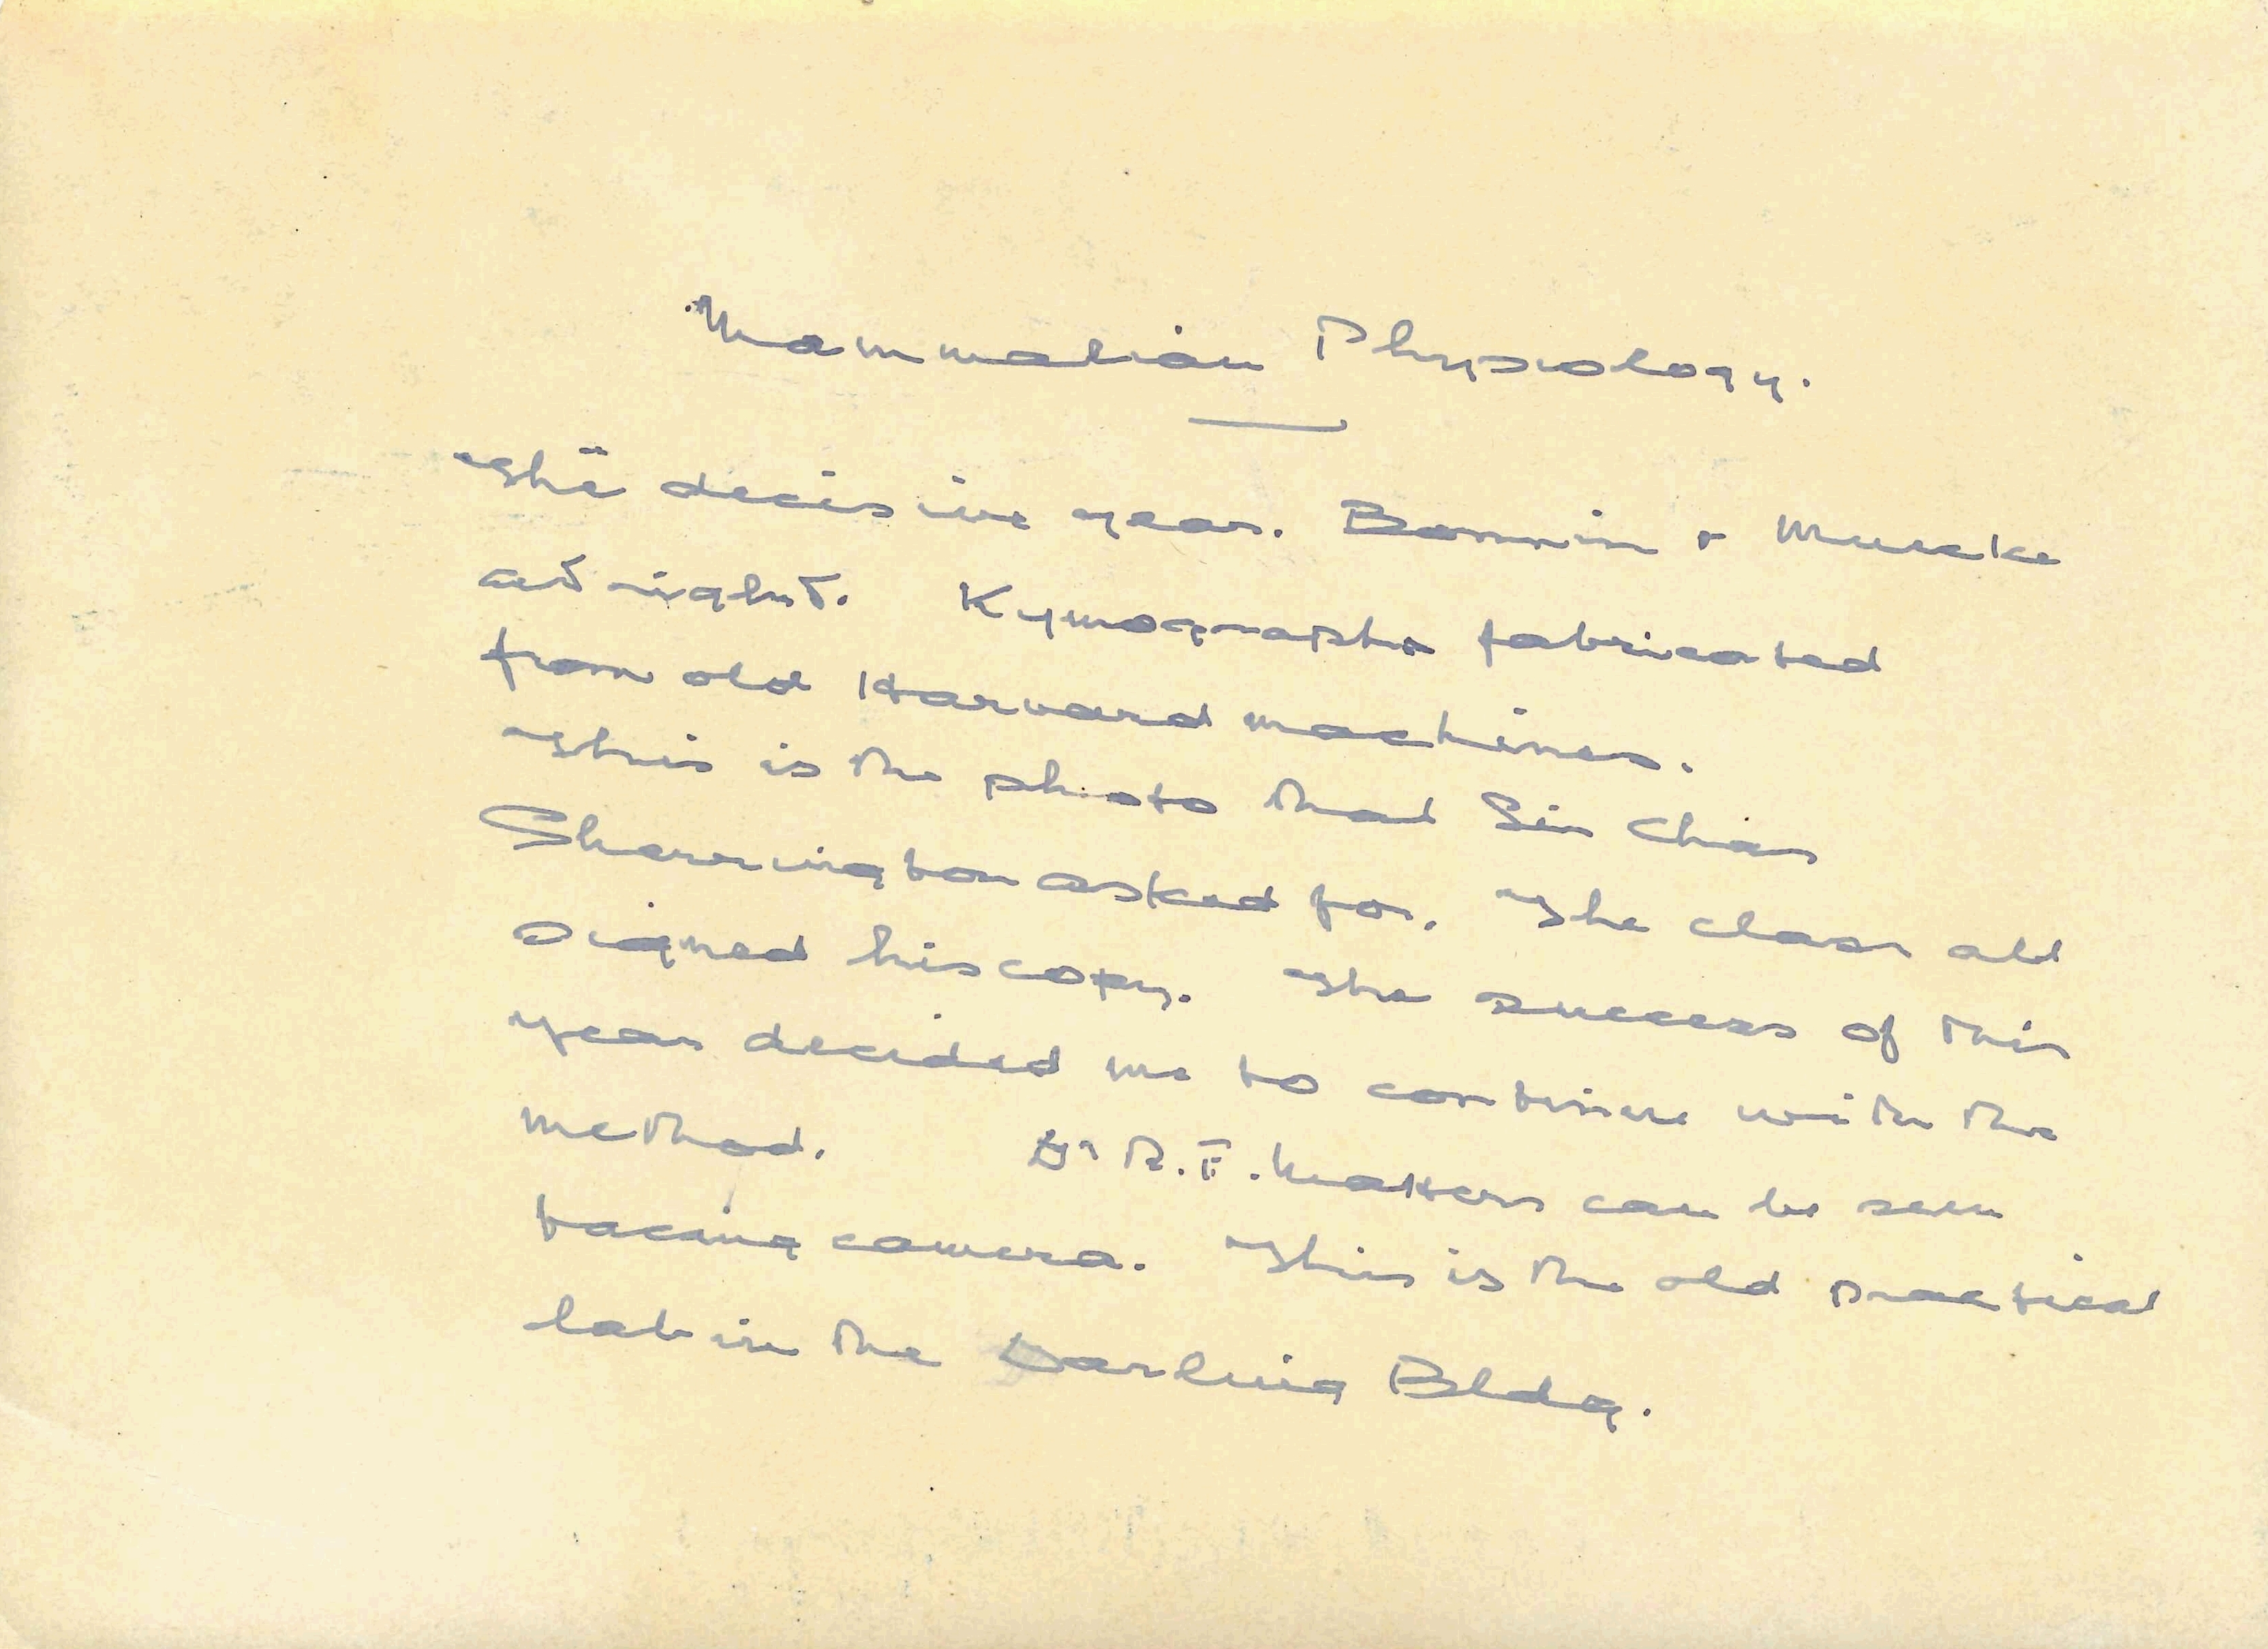 Mammalian Physiology.
The decisive year. Bonnin & Muecke
at right. Kymographs fabricated
from old Harvard machines.
This is the photo that Sir Chas
Sherrington asked for. The class all
signed his copy. The success of this
year decided me to continue with the
method. Dr R.F. Matters can be seen
facing camera. This is the old practical
lab in the Darling Bldg.